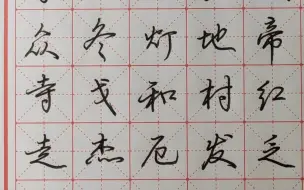 众冬灯地帝
寺戈和村红
走杰厄发乏